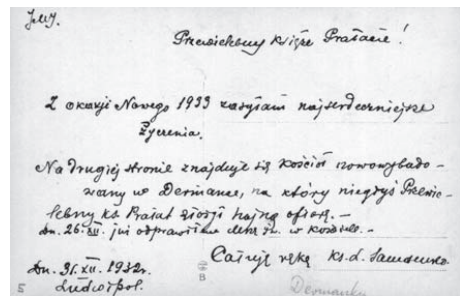 Przewielebny Księże Prałacie!
Z okazji Nowego 1933 zasyłam najserdeczniejsze
życzenia.
Na drugiej stronie znajduje się kościół nowowybudo-
wany w Dermance, na który niegdyś Przewie-
lebny ks. Prałat złożył hojną ofiarę. -
dn. 26.XII. już odprawiłem mszę św. w kościele. -
Całuję rękę ks. L.
Dn. 31.XII. 1932r.
Ludwipol.
5
B
Dermanka